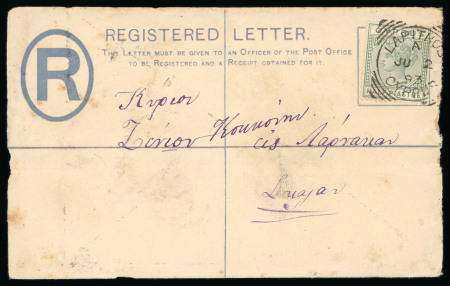 REGISTERED LETTER.
THIS LETTER MUST BE GIVEN TO AN OFFICER OF THE POST OFFICE
TO BE REGISTERED AND A RECEIPT OBTAINED FOR IT.
R
LAPITHOS
A
JU
97
Κυριον
Ζήνων
εἰς Λάρνακαν